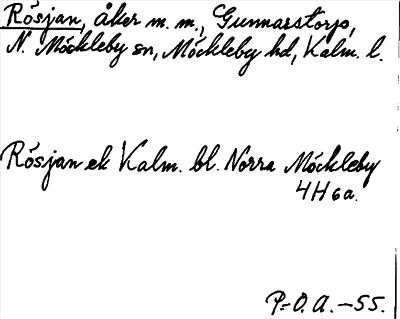 Rösjan, åker m. m., Gunnarstorp,
N. Möckleby sn, Möckleby hd, Kalm. l.
Rösjan ek Kalm. bl. Norra Möckleby
4H 6a.
P.-O. A. -55.